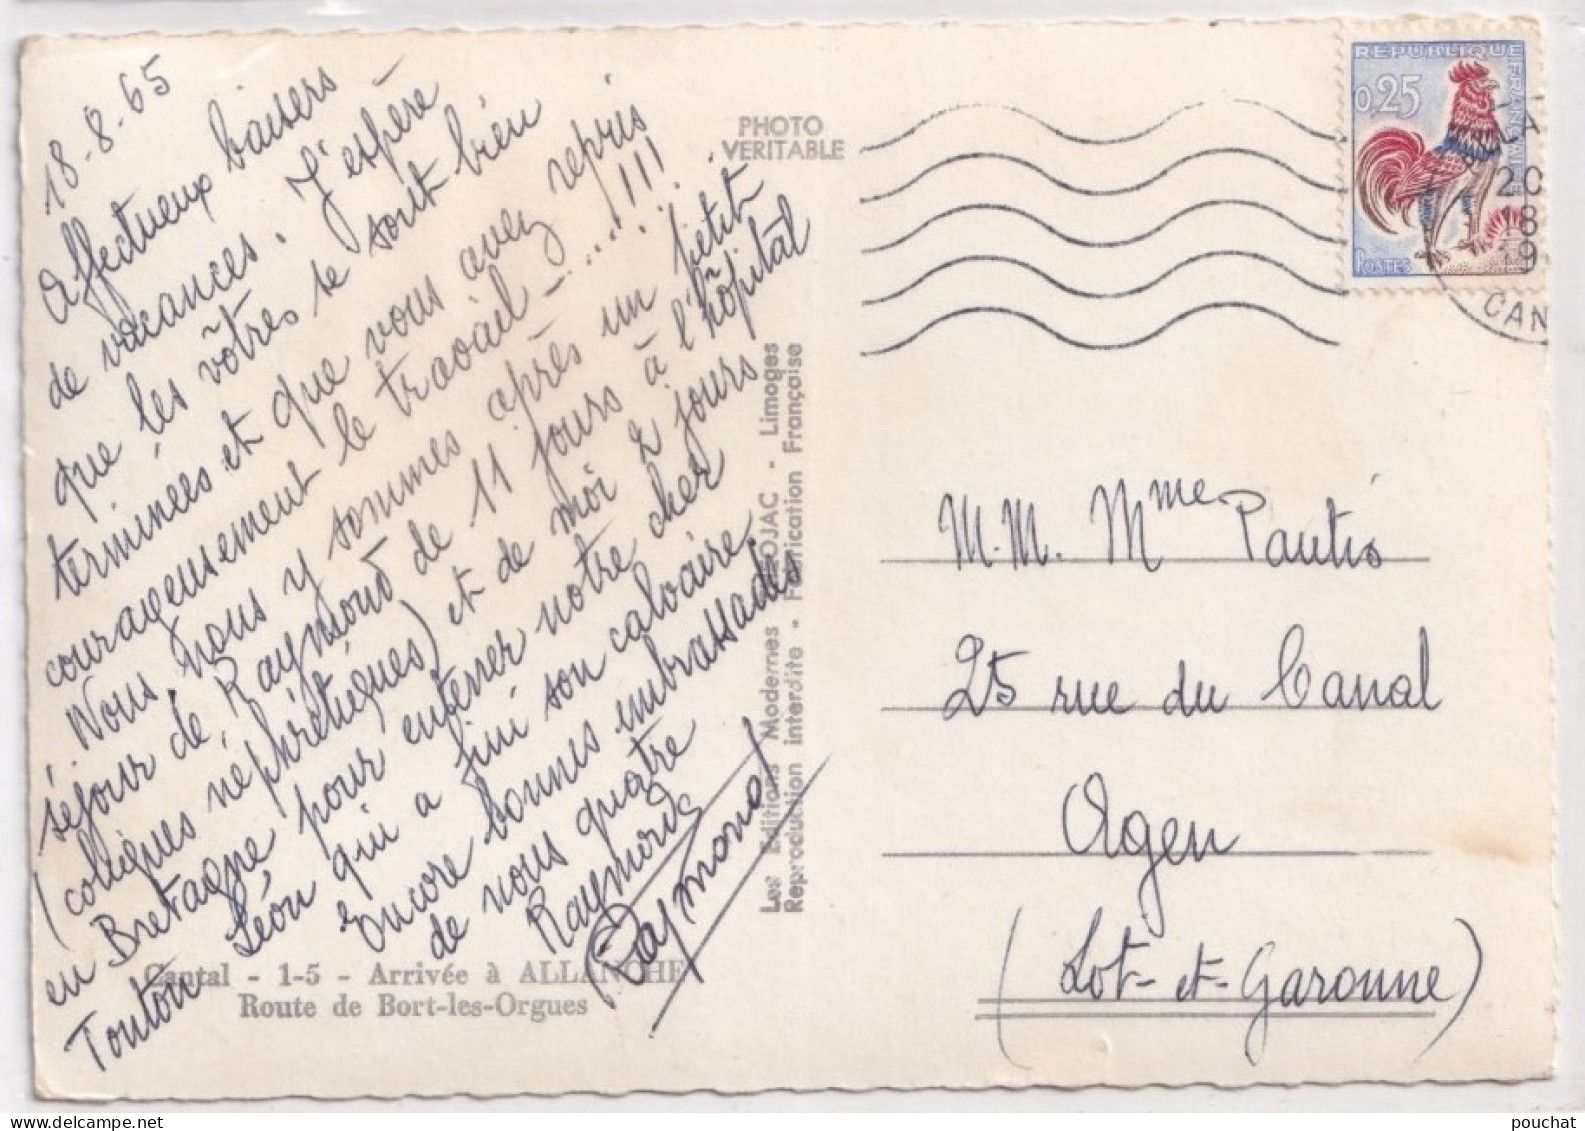 18-8-65
Affectueux baisers
de vacances. J'espère
que les vôtres se sont bien
terminées et que vous avez repris
courageusement le travail - .....!!!
Nous, nous y sommes après un petit
séjour de Raymond de 11 jours à l'hôpital
(coliques néphrétiques) et de moi 2 jours
en Bretagne pour enterrer notre cher
Tonton Léon qui a fini son calvaire.
Encore bonnes embrassades
de nous quatre
Raymonde
Raymond
Cantal - 1-5 - Arrivée à ALLANCHE
Route de Bort-les-Orgues
PHOTO
VERITABLE
Les Editions Modernes - Limoges
Reproduction interdite - Fabrication Française
REPUBLIQUE FRANÇAISE
0,25
POSTES
20
8
19
CAN
M.M. Mme Pautis
25 rue du Canal
Agen
(Lot-et-Garonne)
pouchat